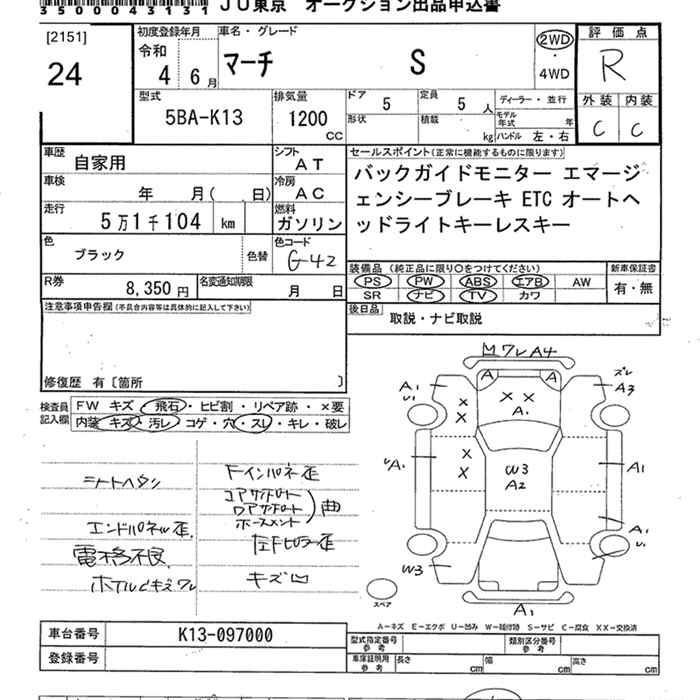 3500043131 JU東京 オークション出品申込書
[2151]
24
初度登録年月
令和
4 6月
車名・グレード
マーチ S
2WD
・
4WD
評価点
R
外装 内装
C C
型式
5BA-K13
排気量
1200
CC
ドア
5
定員
5 人
形状
積載
kg
ディーラー・並行
モデル年式 年
ハンドル 左・右
車歴
自家用
シフト
AT
車検
年 月( 日)
冷房
AC
走行
5万1千104 km
燃料
ガソリン
色
ブラック
色替
色コード
G42
R券
8,350円
名変通知期限
月 日
セールスポイント(正常に機能するものに限ります)
バックガイドモニター エマージ
ェンシーブレーキ ETC オートヘ
ッドライトキーレスキー
装備品 (純正品に限り○をつけてください)
PS PW ABS エアB AW
SR ナビ TV カワ
新車保証書
有・無
後日品
取説・ナビ取説
注意事項申告欄(不具合内容等は具体的に記入して下さい)
修復歴 有〔箇所 〕
検査員
記入欄
FW キズ・飛石・ヒビ割・リペア跡・×要
内装 キズ・汚レ・コゲ・穴・スレ・キレ・破レ
シートヘタリ
エンドパネル歪
電格不良
FインパネE歪
コアサポート
ロアサポート
ホースメント
曲
左Fピラー歪
キズ凹
Mワレ A4
A1
A
A
ズレ
A3
X X
A1
X
X
X
X
A1
W3
A2
A1
A1
W3
A1
スペア
A-キズ E-エクボ U-凹み W-補修跡 S-サビ C-腐食 XX-交換済
車台番号
K13-097000
登録番号
型式指定番号
参考
類別区分番号
参考
車庫証明用
参考
長さ cm
幅 cm
高さ cm